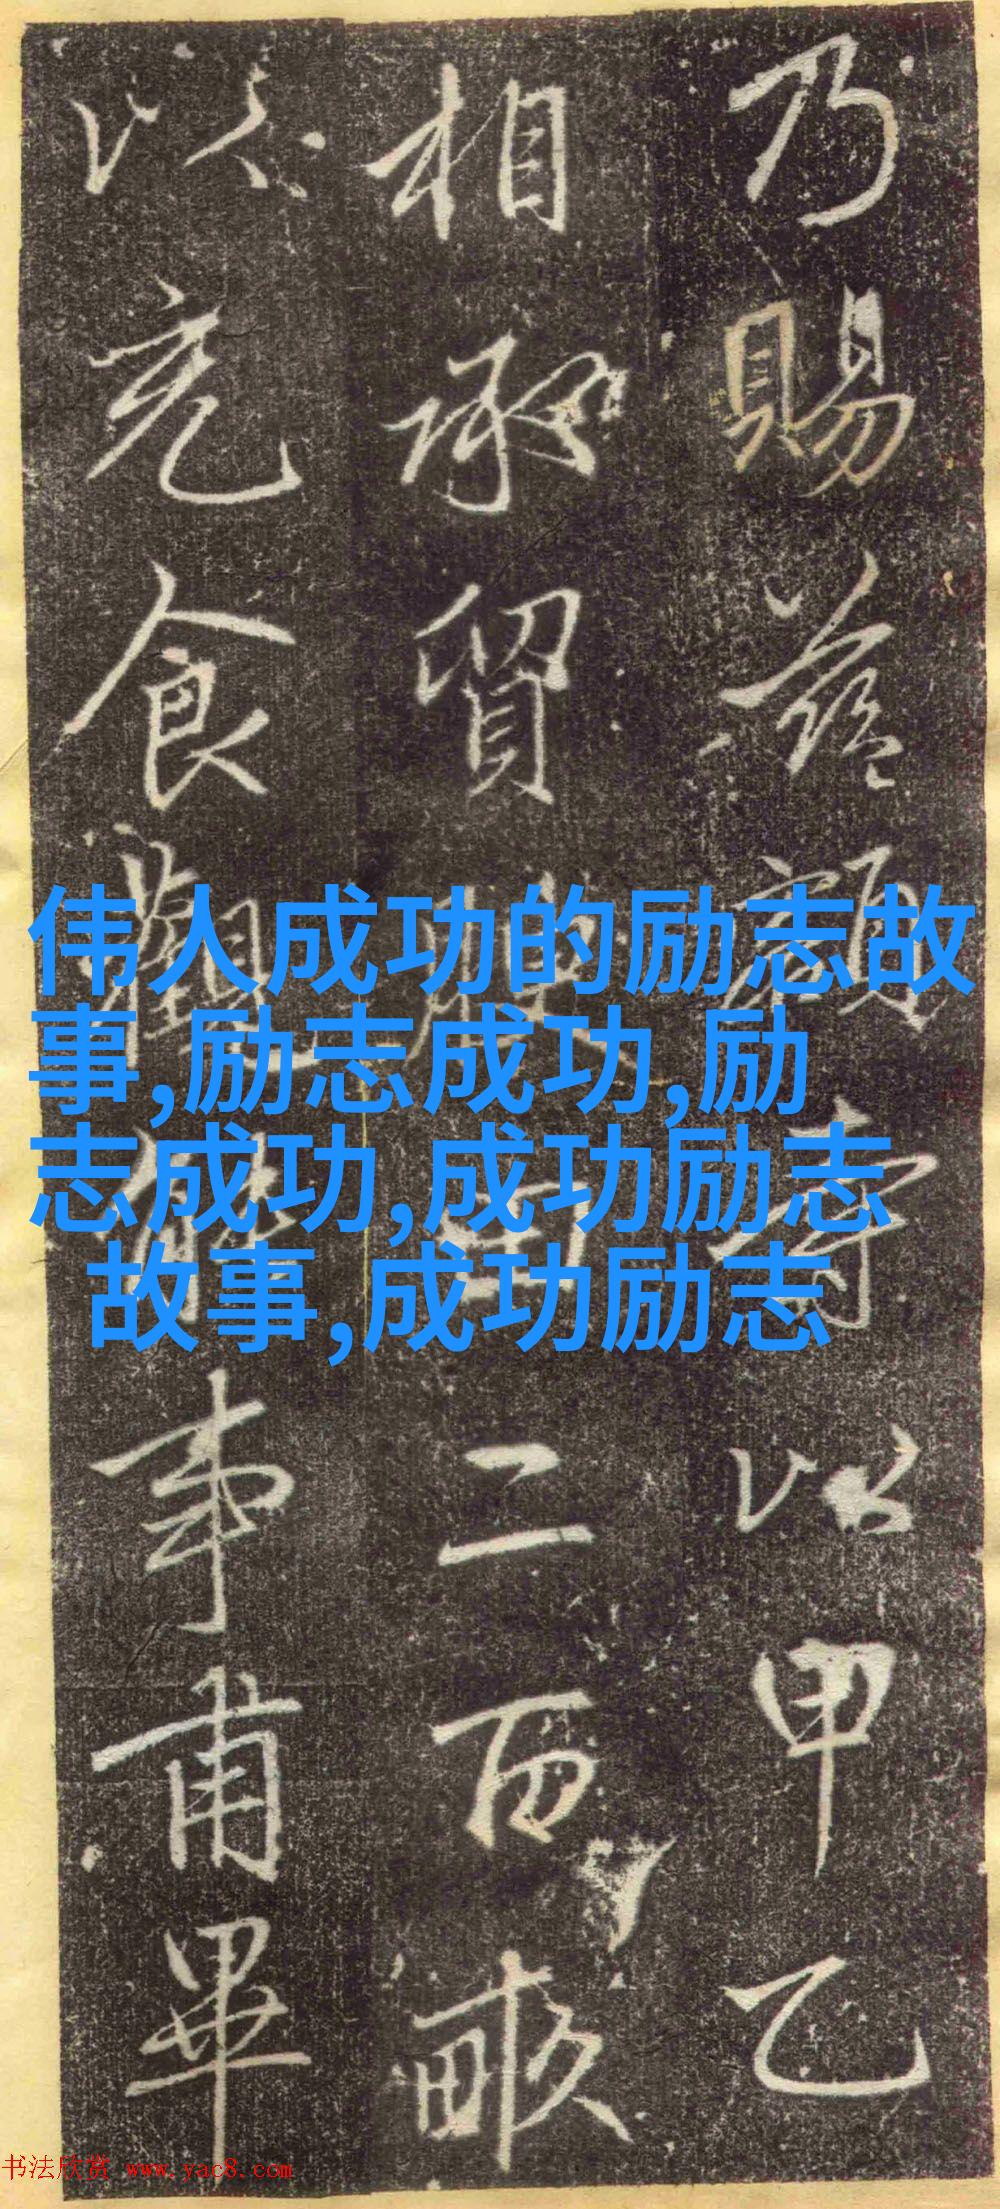 乃賜益顧壽以甲乙
相承貿腴田二百畝
以充食觀能事甫畢
伟人成功的励志故
事,励志成功,励
志成功,成功励志
故事,成功励志
书法欣赏 www.yac8.com